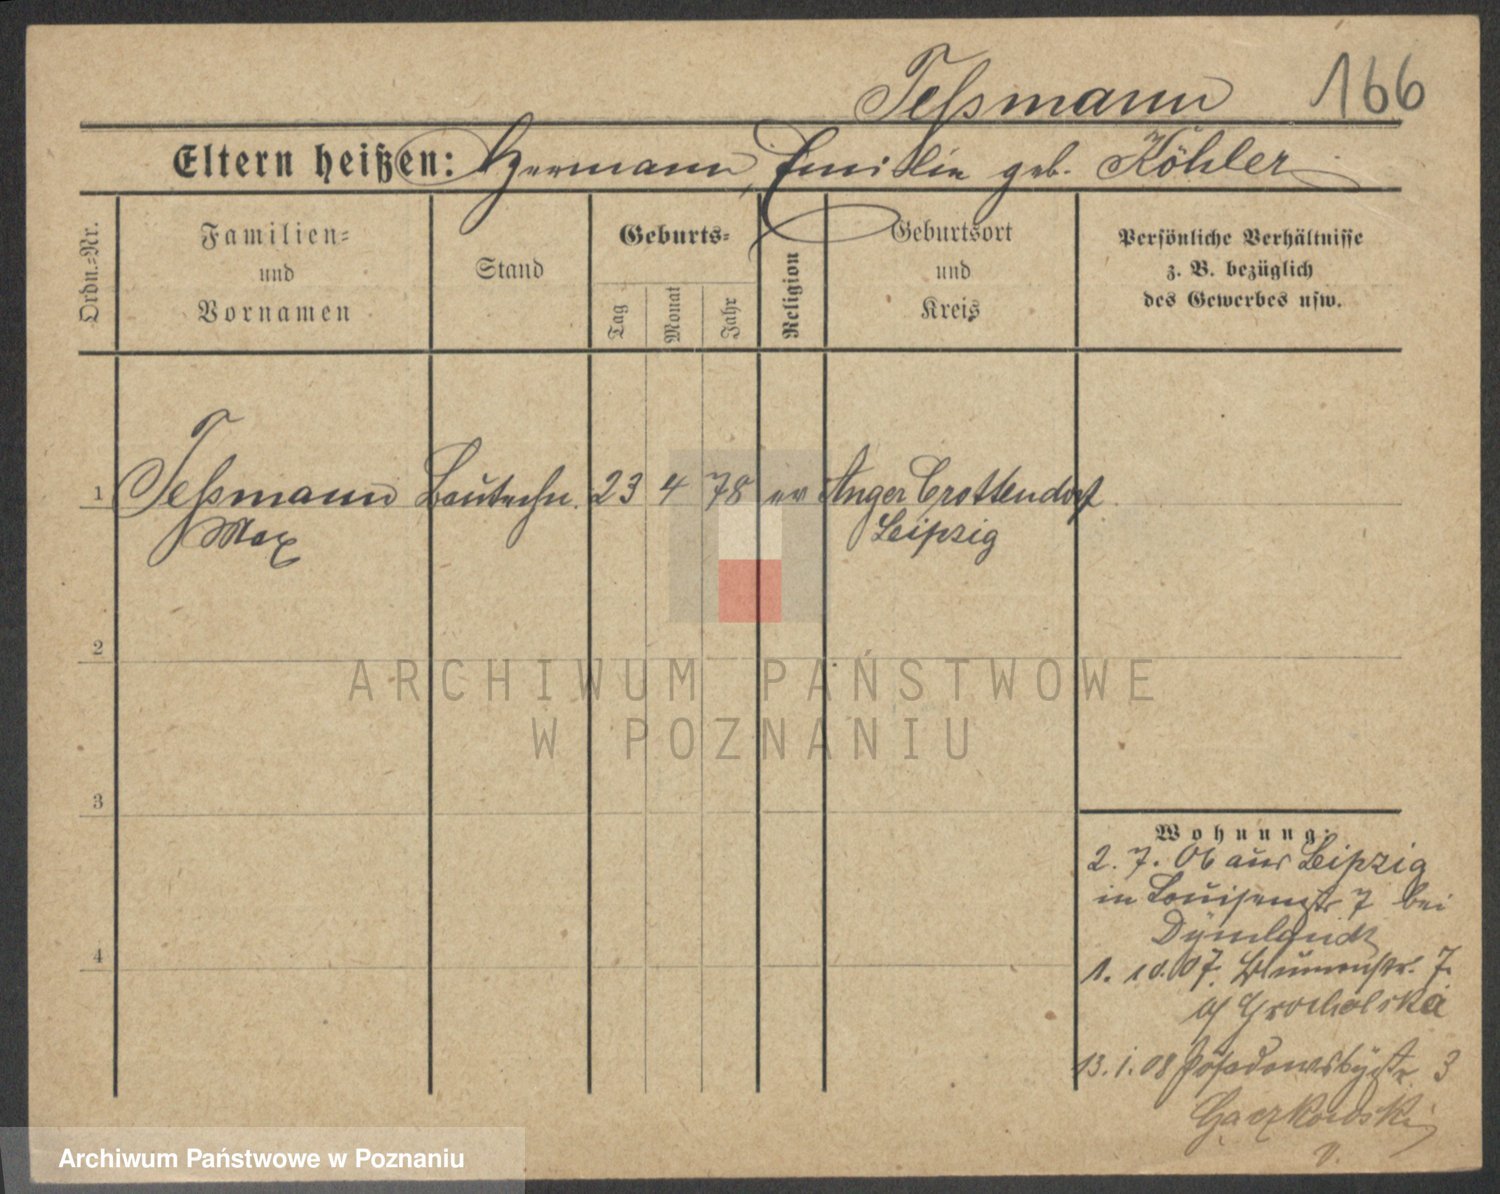 Teßmann 166
Eltern heißen: Hermann, Emilie geb. Köhler
Ordn.-Nr.
Familien-
und
Vornamen
Stand
Geburts-
Tag
Monat
Jahr
Religion
Geburtsort
und
Kreis
Persönliche Verhältnisse
z. B. bezüglich
des Gewerbes usw.
1 Teßmann Bautechn. 23 4 78 ev Anger Crottendorf
Max Leipzig
2
3
4
Wohnung:
2. 7. 06 aus Leipzig
in Louisenstr 7 bei
1. 10. 07. Blumenstr. 7.
Grocholska
13. 1. 08 Posadowskystr. 3
Gączkowski
ARCHIWUM PAŃSTWOWE
W POZNANIU
Archiwum Państwowe w Poznaniu